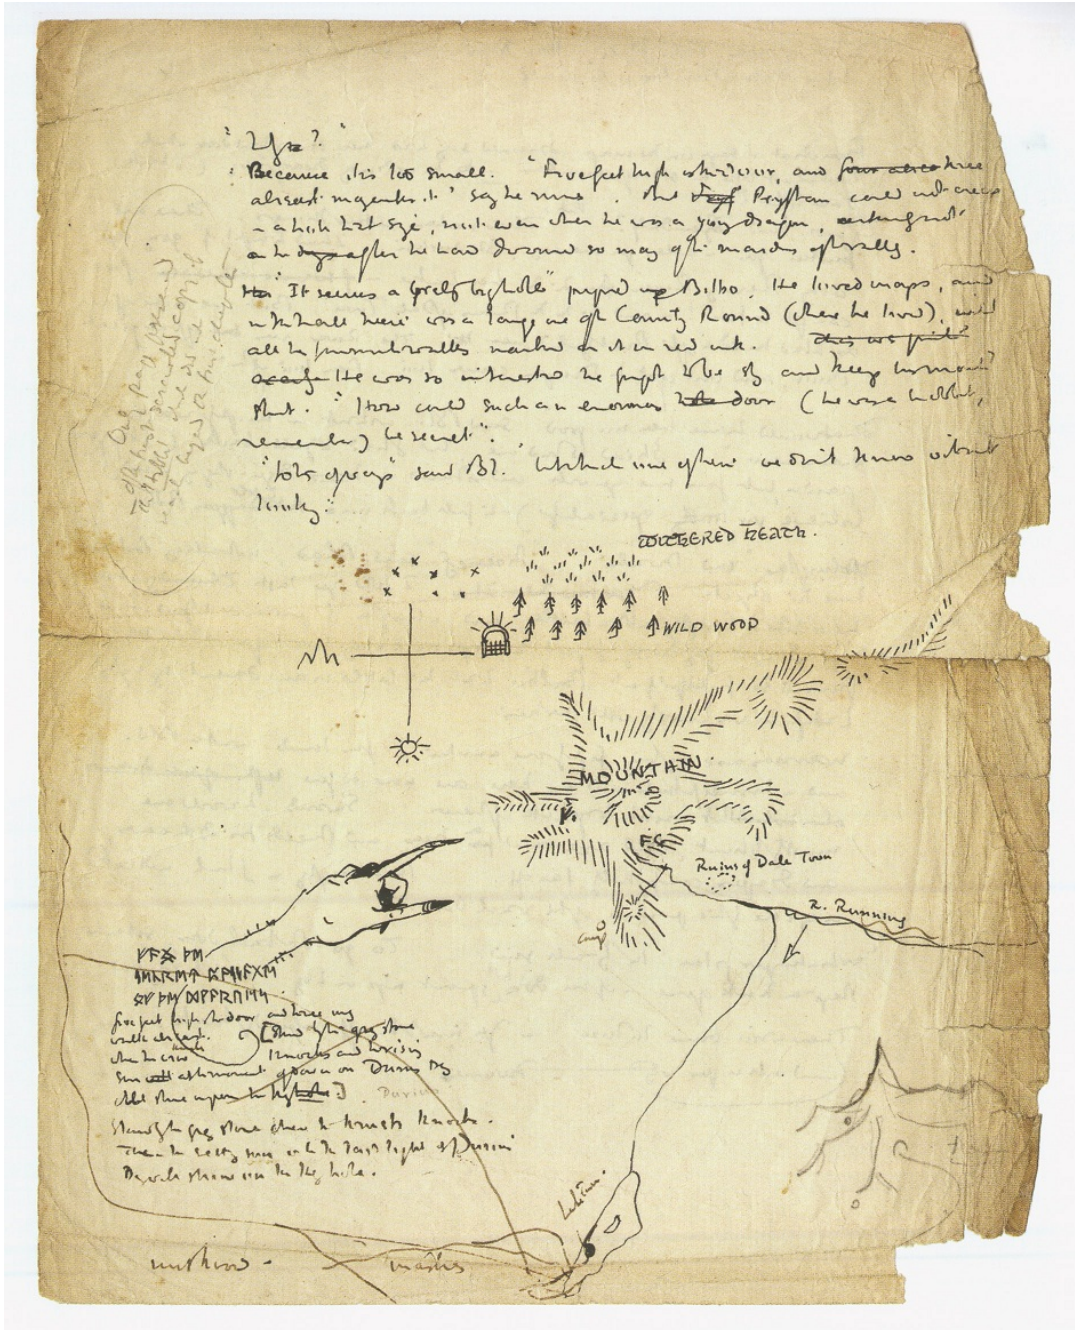 "Why?"
"Because it is too small. "Five feet high is the door, and four abreast three
abreast may enter it" say the runes. But Pryftan could not creep
in a hole that size, not even when he was a young dragon, certainly not
after he had devoured so many of the maidens of the valley.
"It seems a great big hole" piped up Bilbo. He loved maps, and
in the hall there was a large one of the County Round (where he lived), with
all his favourite walks marked on it in red ink.
He was so interested he forgot to be shy and keep his mouth
shut. "How could such an enormous hole door (he was a hobbit,
remember) be secret".
"Lots of ways" said Bl. but which one of them we don't know without
looking."
Only page preserved
of the first scrawled copy of
the Hobbit which did not
reach beyond the first chapter
WITHERED HEATH.
WILD WOOD
MOUNTAIN
F.G.
Ruins of Dale Town
R. Running
camp
ᚠᚪᛝ ᚦᛖ
ᛋᛖᚳᚱᛖᛏ ᛈᚪᛋᛋᚪᚷᛖ
ᚩᚠ ᚦᛖ ᛞᚹᚪᚱᚢᛖᛋ
five feet high is the door and three may
walk abreast. [Stand by the grey stone
when the crow knocks and the rising
sun at the moment of dawn on Durins Day
will shine upon the keyhole.] Durin
Stand by the grey stone where the thrush knocks.
Then the setting sun on the last light of Durins
Day will shine on the key hole.
Lake Town.
mirkwood
marshes